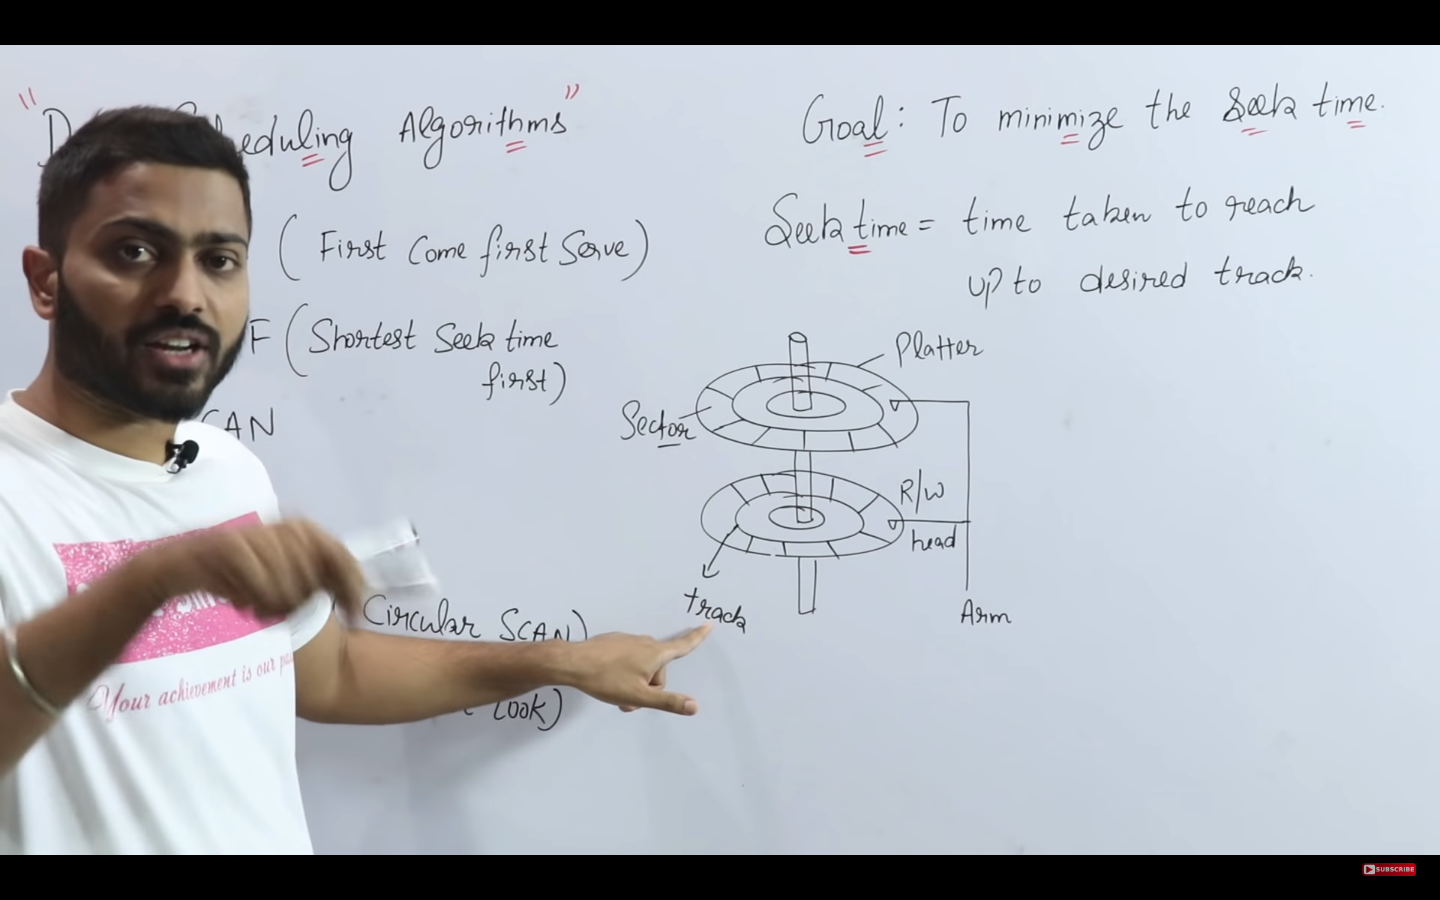 "D Scheduling Algorithms"
(First Come first Serve)
F (Shortest Seek time
first)
SCAN
Circular SCAN)
Look)
Goal: To minimize the Seek time.
Seek time = time taken to reach
up to desired track.
Platter
Sector
R/W
head
track
Arm
Your achievement is our
SUBSCRIBE